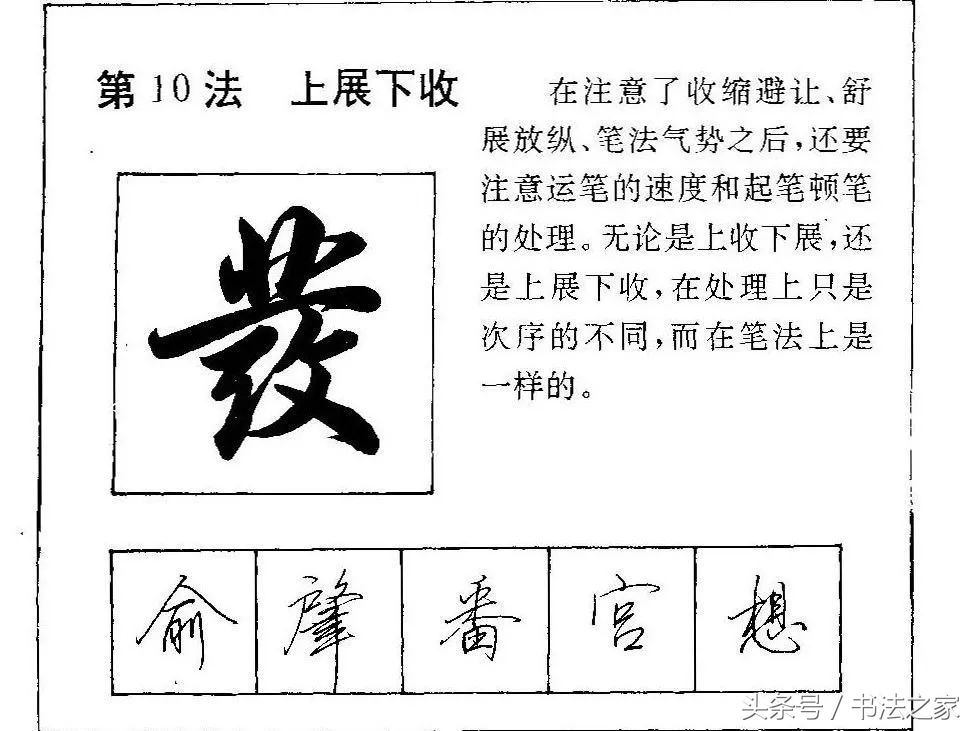 第10法 上展下收
在注意了收缩避让、舒
展放纵、笔法气势之后，还要
注意运笔的速度和起笔顿笔
的处理。无论是上收下展，还
是上展下收，在处理上只是
次序的不同，而在笔法上是
一样的。
發
俞 肇 番 宫 想
头条号 / 书法之家